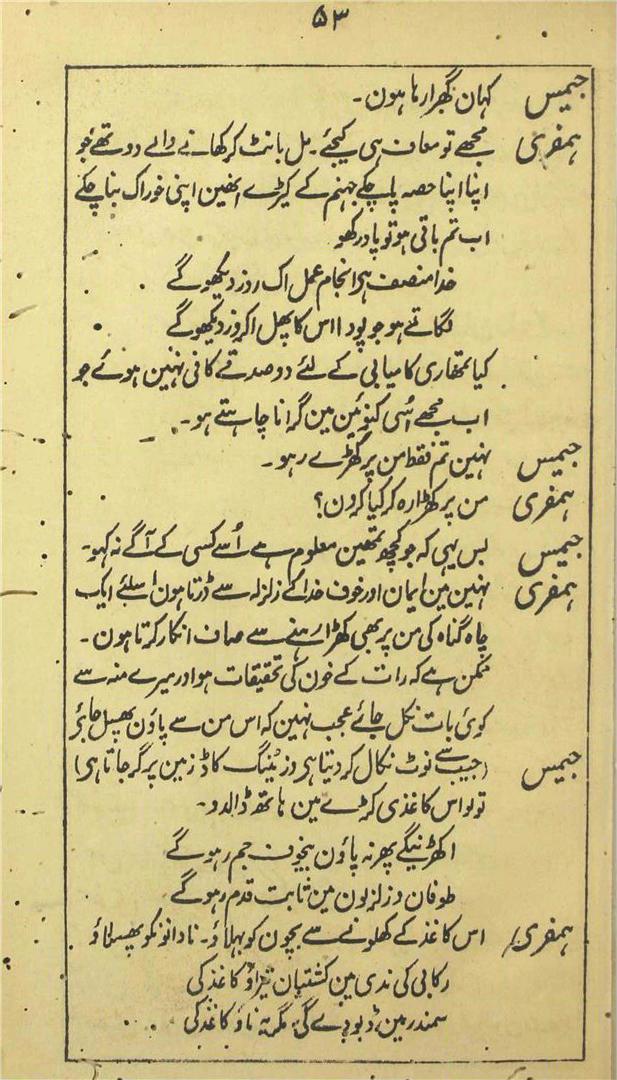 ۵۳
جیمس کہان گھبرا رہا ہون۔
ہمفری مجھے تو معاف ہی کیجئے۔ مل بانٹ کر کھانے والے دو تھے جو
اپنا اپنا حصہ پا چکے جہنم کے کیڑے انھین اپنی خوراک بنا چکے
اب تم باقی ہو تو یاد رکھو
خدا منصف ہی انجام عمل اک روز دیکھو گے
لگاتے ہو جو پودا اس کا پھل اکروز دیکھو گے
کیا تمھاری کامیابی کے لئے دو صدقے کافی نہین ہوئے جو
اب مجھے اسی کنوئین مین گرانا چاہتے ہو۔
جیمس نہین تم فقط من پر کھڑے رہو۔
ہمفری من پر کھڑا رہ کر کیا کرون؟
جیمس بس یہی کہ جو کچھ تمھین معلوم ہے اُسے کسی کے آگے نہ کہو۔
ہمفری نہین مین ایمان اور خوف خدا کے زلزلہ سے ڈرتا ہون اسلئے ایک
چاہ گناہ کی من پر بھی کھڑا رہنے سے صاف انکار کرتا ہون۔
ممکن ہے کہ رات کے خون کی تحقیقات ہو اور میرے منہ سے
کوئی بات نکل جائے عجب نہین کہ اس من سے پاؤن پھسل جائے
جیمس (جیب سے نوٹ نکال کر دیتا ہی وزیٹنگ کاڈ زمین پر گر جاتا ہی)
تو لو اس کاغذی کڑے مین ہاتھ ڈالدو۔
اکھڑینگے پھر نہ پاؤن بیخوف جم رہو گے
طوفان و زلزلون مین ثابت قدم رہو گے
ہمفری اس کاغذ کے کھلونے سے بچون کو بہلاؤ۔ نادانونکو پھسلاؤ
رکابی کی ندی مین کشتیان تیراؤ کاغذ کی
سمندر مین ڈبو دے گی مگر یہ ناؤ کاغذ کی